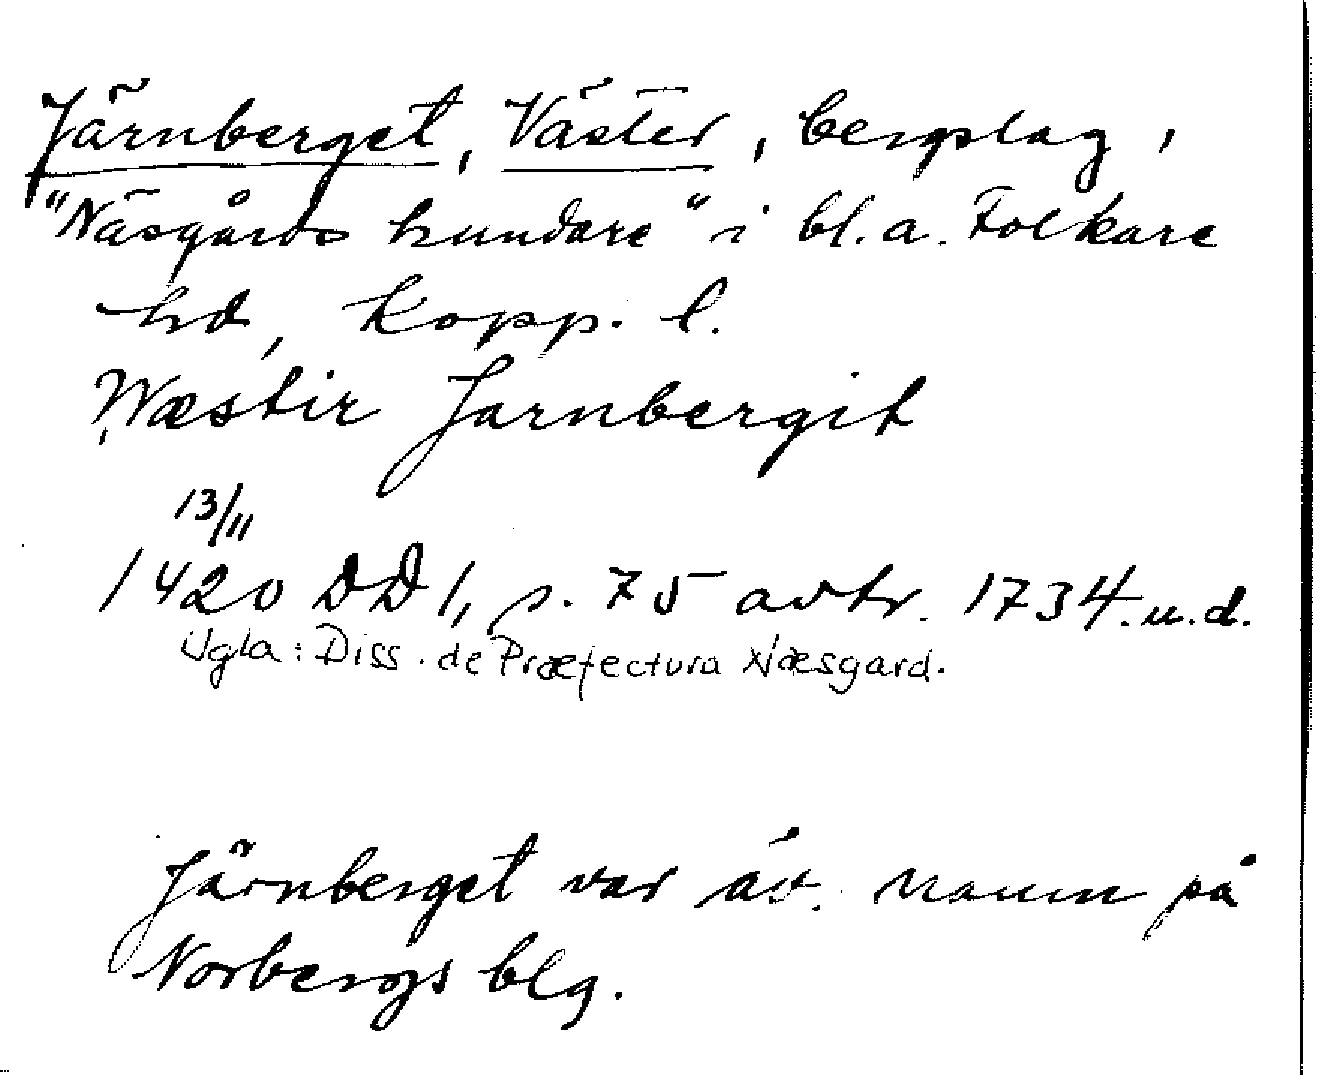 Järnberget, Väster, bergslag,
"Näsgårds hundare" i bl.a. Folkare
hd, Kopp. l.
Wæstir Jarnbergit
13/11
1420 DD 1, s. 75 avtr. 1734. u.d.
Ugla: Diss. de Præfectura Næsgard.
Järnberget var äv. namn på
Norbergs blg.